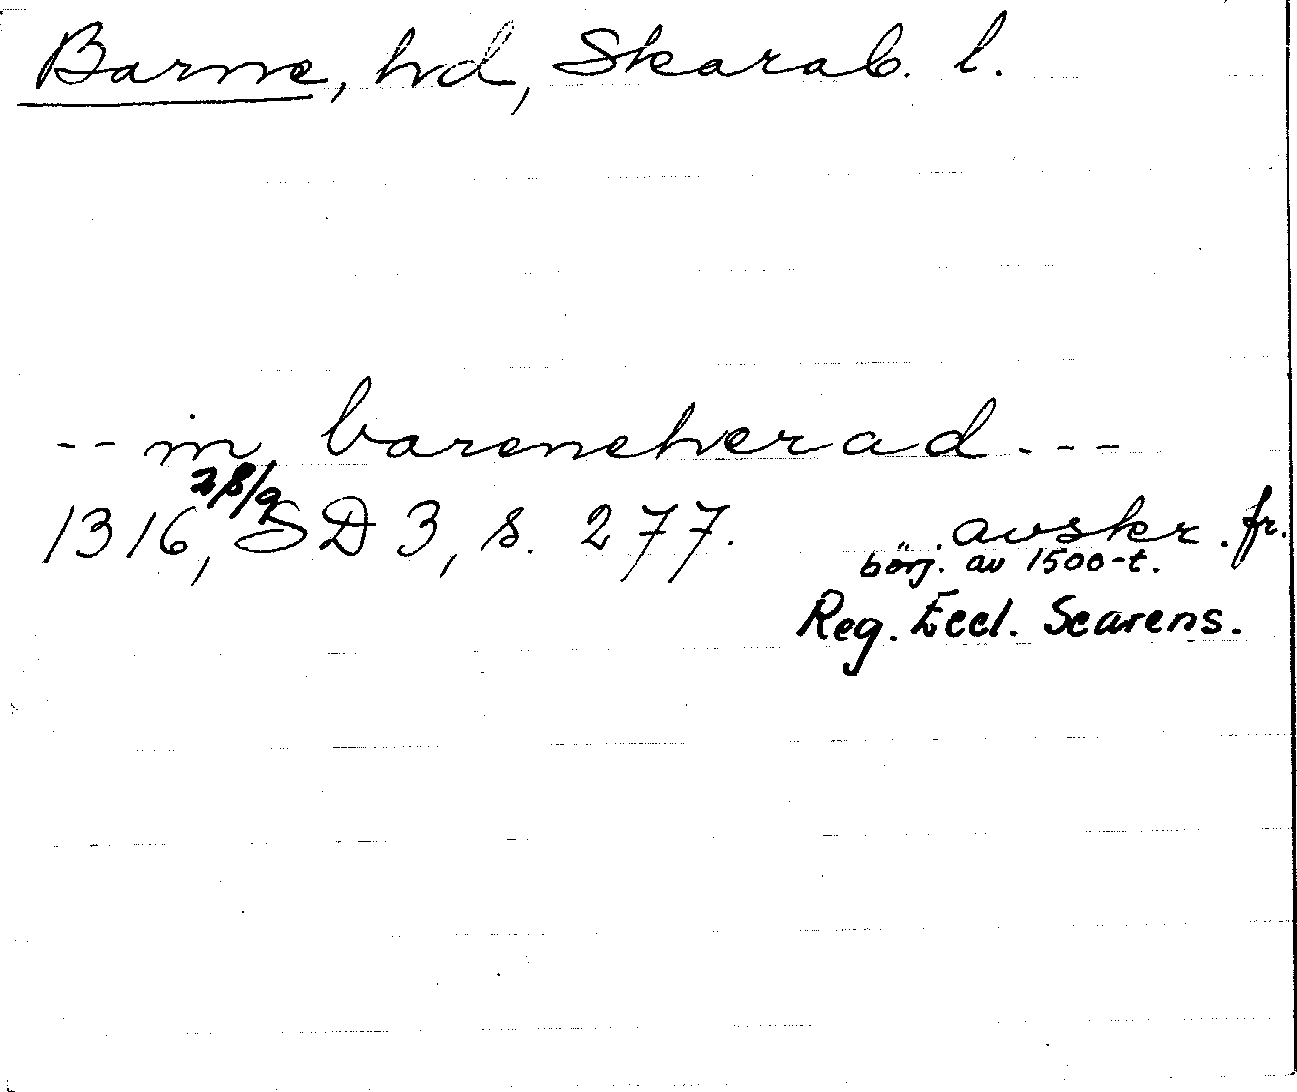 Barne, hd, Skarab. l.
-- in bareneherad ---
1316, 28/9 SD 3, s. 277. avskr. fr.
börj. av 1500-t.
Reg. Eccl. Scarens.